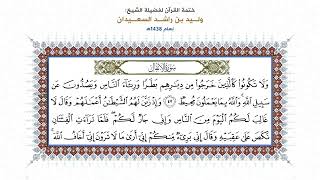 ختمة القرآن لفضيلة الشيخ:
وليد بن راشد السعيدان
لعام 1438هـ
سُورَةُ الأَنفَال
وَلَا تَكُونُوا۟ كَٱلَّذِينَ خَرَجُوا۟ مِن دِيَـٰرِهِم بَطَرًا وَرِئَآءَ ٱلنَّاسِ وَيَصُدُّونَ عَن
سَبِيلِ ٱللَّهِ وَٱللَّهُ بِمَا يَعْمَلُونَ مُحِيطٌ ٤٧ وَإِذْ زَيَّنَ لَهُمُ ٱلشَّيْطَـٰنُ أَعْمَـٰلَهُمْ وَقَالَ لَا
غَالِبَ لَكُمُ ٱلْيَوْمَ مِنَ ٱلنَّاسِ وَإِنِّى جَارٌ لَّكُمْ فَلَمَّا تَرَآءَتِ ٱلْفِئَتَانِ
نَكَصَ عَلَىٰ عَقِبَيْهِ وَقَالَ إِنِّى بَرِىٓءٌ مِّنكُمْ إِنِّىٓ أَرَىٰ مَا لَا تَرَوْنَ إِنِّىٓ أَخَافُ ٱللَّهَ